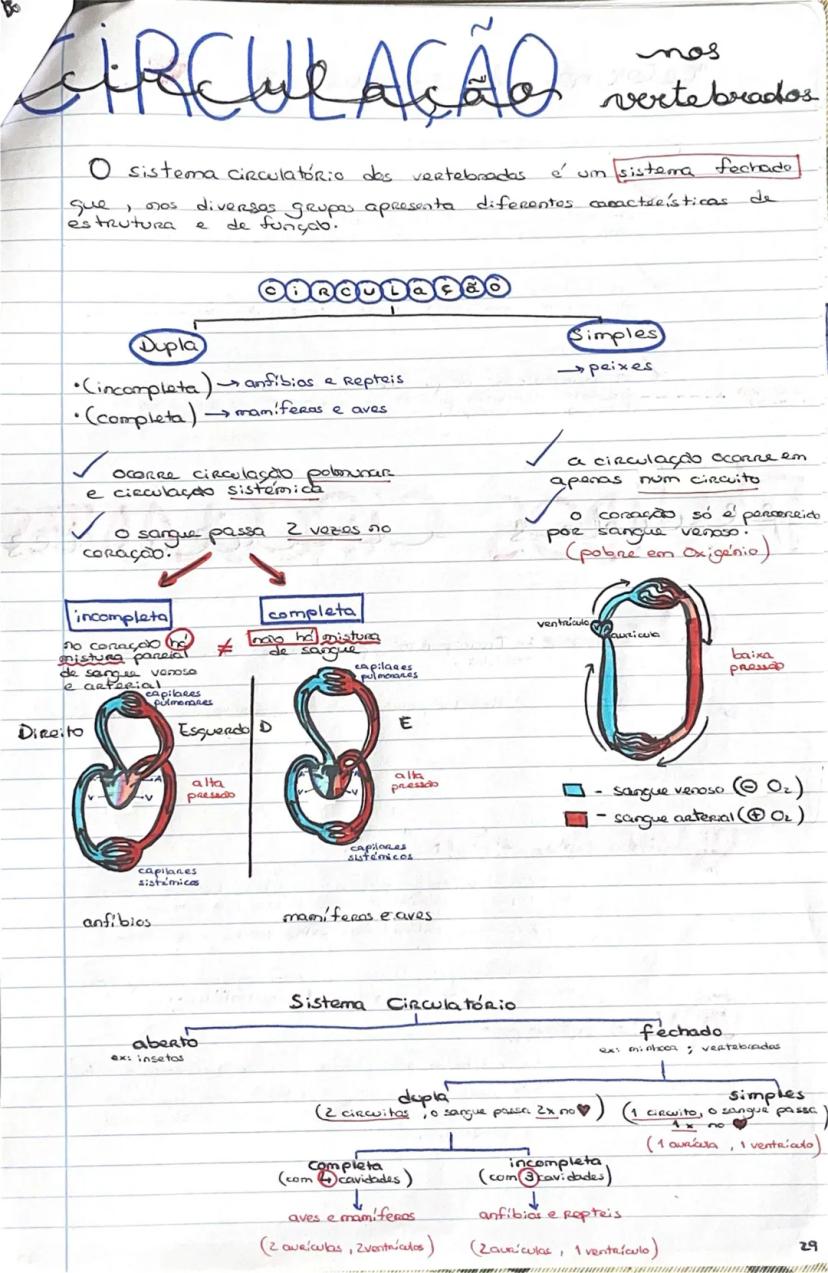 CIRCULAÇÃO
circulação
nos
vertebrados
O sistema circulatório dos vertebrados é um sistema fechado
que, nos diversos grupos apresenta diferentes características de
estrutura e de função.
CIRCULAÇÃO
Dupla
Simples
→ peixes
• (incompleta) → anfíbios e Repteis
• (completa) → mamíferos e aves
✓ ocorre circulação pulmunar
e circulação sistémica
✓ o sangue passa 2 vezes no
coração.
✓ a circulação ocorre em
apenas num circuito
✓ o coração só é percorrido
por sangue venoso.
(pobre em Oxigénio)
incompleta
no coração há
mistura parcial
de sangue venoso
e arterial
≠
completa
não há mistura
de sangue
capilares
pulmonares
Direito
Esquerdo
A
V
V
alta
pressão
capilares
sistémicos
anfíbios
capilares
pulmonares
D
E
A
V
V
alta
pressão
capilares
sistémicos
mamíferos e aves
ventrículo
aurícula
baixa
pressão
- sangue venoso (⊖ O₂)
- sangue arterial (⊕ O₂)
Sistema Circulatório
aberto
ex: insetos
fechado
ex: minhoca ; vertebrados
dupla
(2 circuitos, o sangue passa 2x no ♥)
simples
(1 circuito, o sangue passa
1x no ♥)
(1 aurícula, 1 ventrículo)
completa
(com 4 cavidades)
incompleta
(com 3 cavidades)
aves e mamíferos
anfíbios e Repteis
(2 aurículas, 2 ventrículos)
(2 aurículas, 1 ventrículo)
29